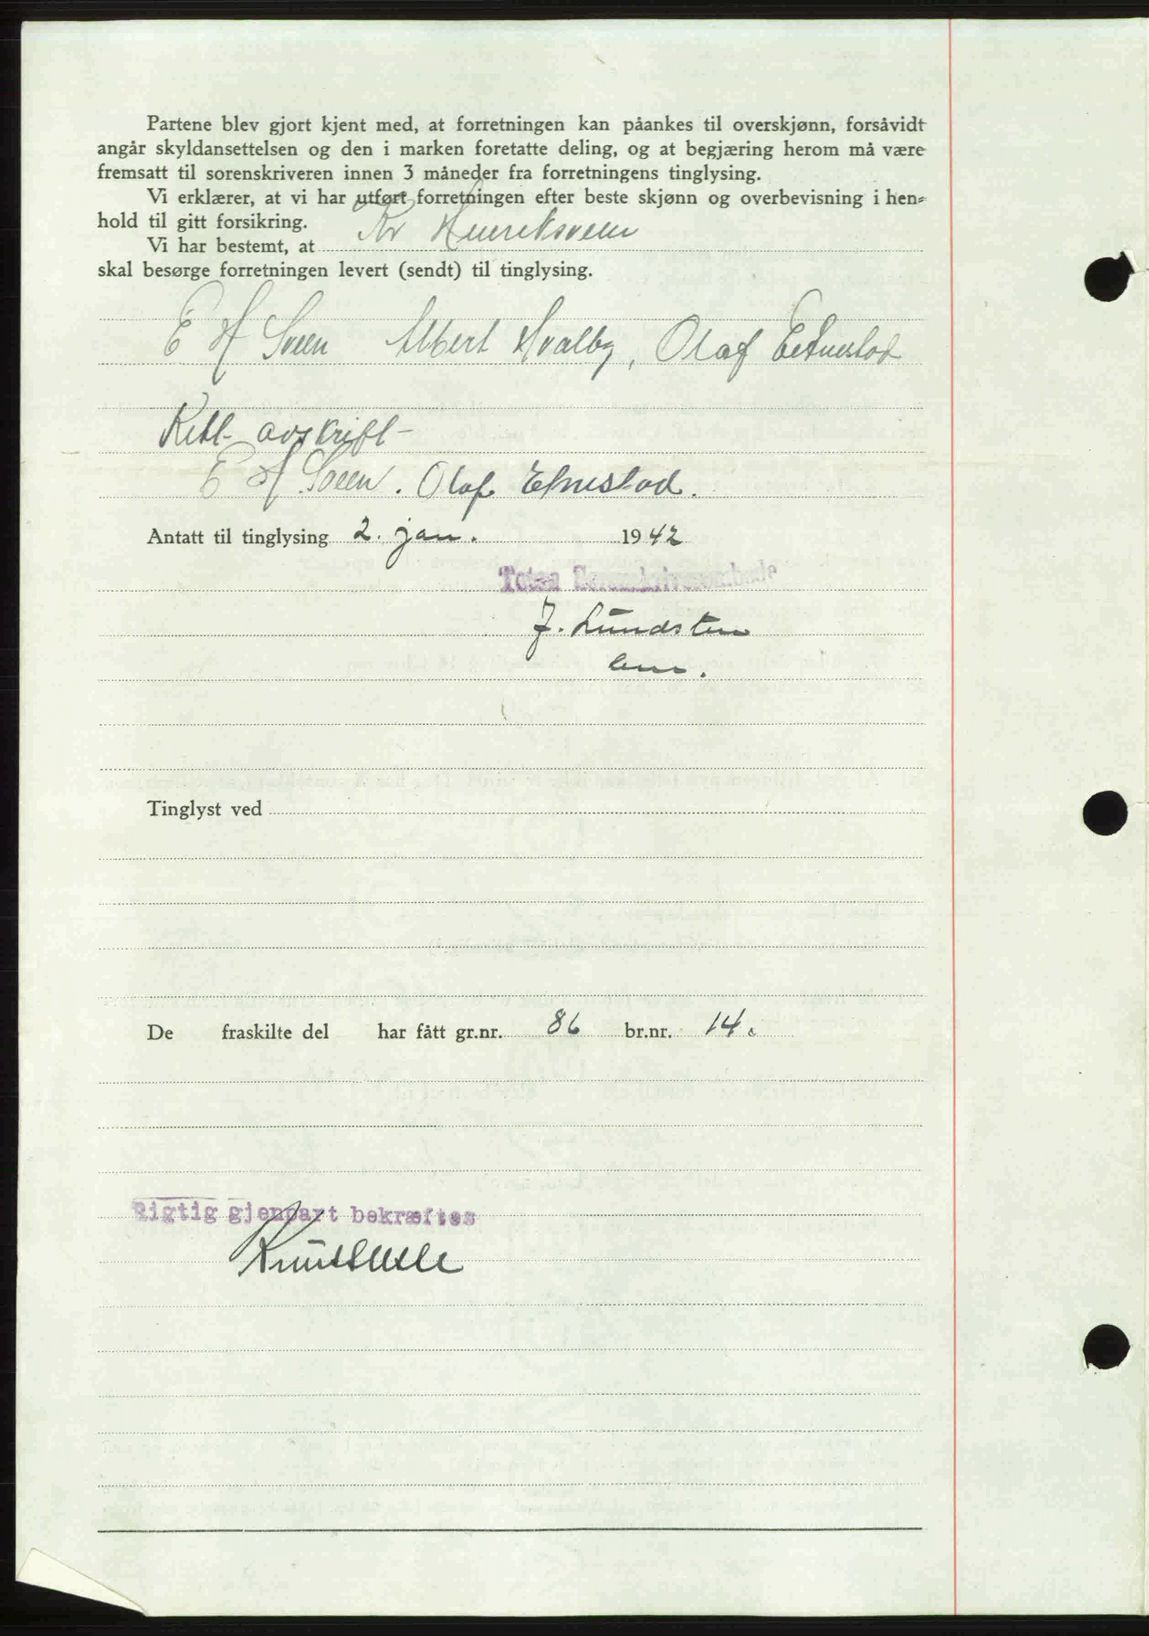 Partene blev gjort kjent med, at forretningen kan påankes til overskjønn, forsåvidt
angår skyldansettelsen og den i marken foretatte deling, og at begjæring herom må være
fremsatt til sorenskriveren innen 3 måneder fra forretningens tinglysing.
Vi erklærer, at vi har utført forretningen efter beste skjønn og overbevisning i hen-
hold til gitt forsikring.
Vi har bestemt, at Kr Henriksveen
skal besørge forretningen levert (sendt) til tinglysing.
E H Sveen Albert Hvalby, Olaf
Rett avskrift-
E H Sveen. Olaf
Antatt til tinglysing 2. jan. 1942
Toten Sorenskriverembede
J. Lundsten
Tinglyst ved
De fraskilte del har fått gr.nr. 86 br.nr. 14.
Rigtig gjenpart bekræftes